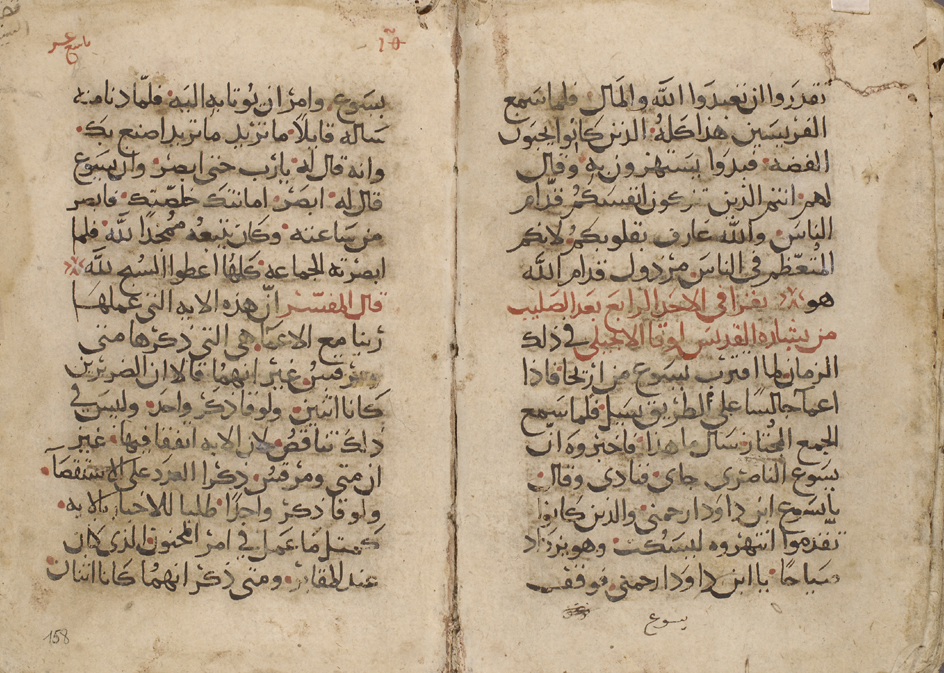 تقدروا ان تعبدوا الله والمال فلما سمع
الفريسين هذا كله الذين كانوا يحبون
الفضه فبدوا يستهزون به وقال
لهم انتم الذين تزكون انفسكم قدام
الناس والله عارف بقلوبكم لانكم
المتعظم في الناس مرذول قدام الله
هو يقرا في الاحد الرابع بعد الصليب
من بشاره القديس لوقا الانجيلي في ذلك
الزمان لما اقترب يسوع من اريحا فاذا
اعما جالسا على الطريق يسل فلما سمع
الجمع المجتاز سال ما هذا فاخبروه ان
يسوع الناصري جاي فنادى وقال
يا يسوع ابن داود ارحمني والذين كانوا
تقدموا انتهروه ليسكت وهو يزداد
صياحا يا ابن داود ارحمني فوقف
يسوع
تاسع عشر
يسوع وامر ان يوتا به اليه فلما دنا منه
ساله قايلا ما تريد ما تريد اصنع بك
وانه قال له يا رب حتى ابصر وان يسوع
قال له ابصر امانتك خلصتك فابصر
من ساعته وكان يتبعه ممجدا لله فلما
ابصرته الجماعه كلها اعطوا السبح لله
قال المفسر ان هذه الايه التي عملها
ربنا مع الاعما هي التي ذكرها متى
ومرقس غير انهما قالا ان الضريرين
كانا اثنين ولوقا ذكر واحد وليس في
ذلك تناقض لان الايه اتفقا فيها غير
ان متى ومرقس ذكرا العدد على الاستقصا
ولوقا ذكر واحدا طلبا للاخبار بالايه
كمثل ما عمل في امر المجنون الذي كان
عند المقابر ومتى ذكر انهما كانا اثنان
158